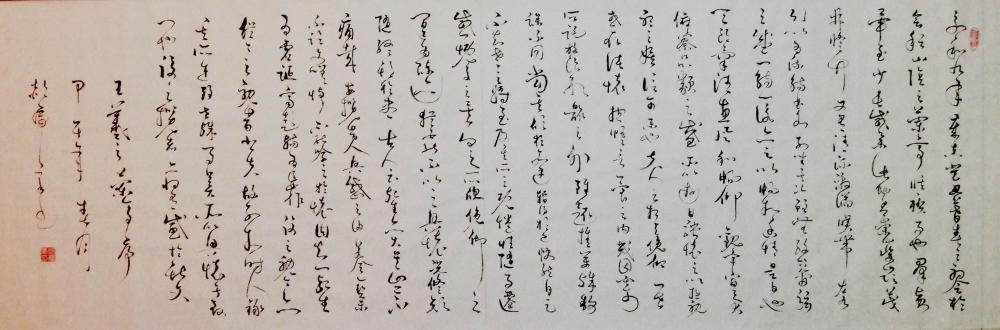 永和九年歲在癸丑暮春之初會於
會稽山陰之蘭亭脩稧事也羣賢
畢至少長咸集此地有崇山峻領茂
林脩竹又有清流激湍暎帶左右
引以為流觴曲水列坐其次雖無絲竹管弦
之盛一觴一詠亦足以暢敘幽情是日也
天朗氣清惠風和暢仰觀宇宙之大
俯察品類之盛所以遊目騁懷足以極視
聽之娛信可樂也夫人之相與俯仰一世
或取諸懷抱悟言一室之內或因寄
所託放浪形骸之外雖趣舍萬殊靜
躁不同當其欣於所遇暫得於己快然自足
不知老之將至及其所之既惓情隨事遷
感慨係之矣向之所欣俛仰之
間以為陳迹猶不能不以之興懷況脩短
隨化終期於盡古人云死生亦大矣豈不
痛哉每攬昔人興感之由若合一契
未嘗不臨文嗟悼不能喻之於懷固知一死生
為虛誕齊彭殤為妄作後之視今亦由
今之視昔悲夫故列敘時人錄
其所述雖世殊事異所以興懷其致
一也後之攬者亦將有感於斯文
王羲之蘭亭序
甲午年春月